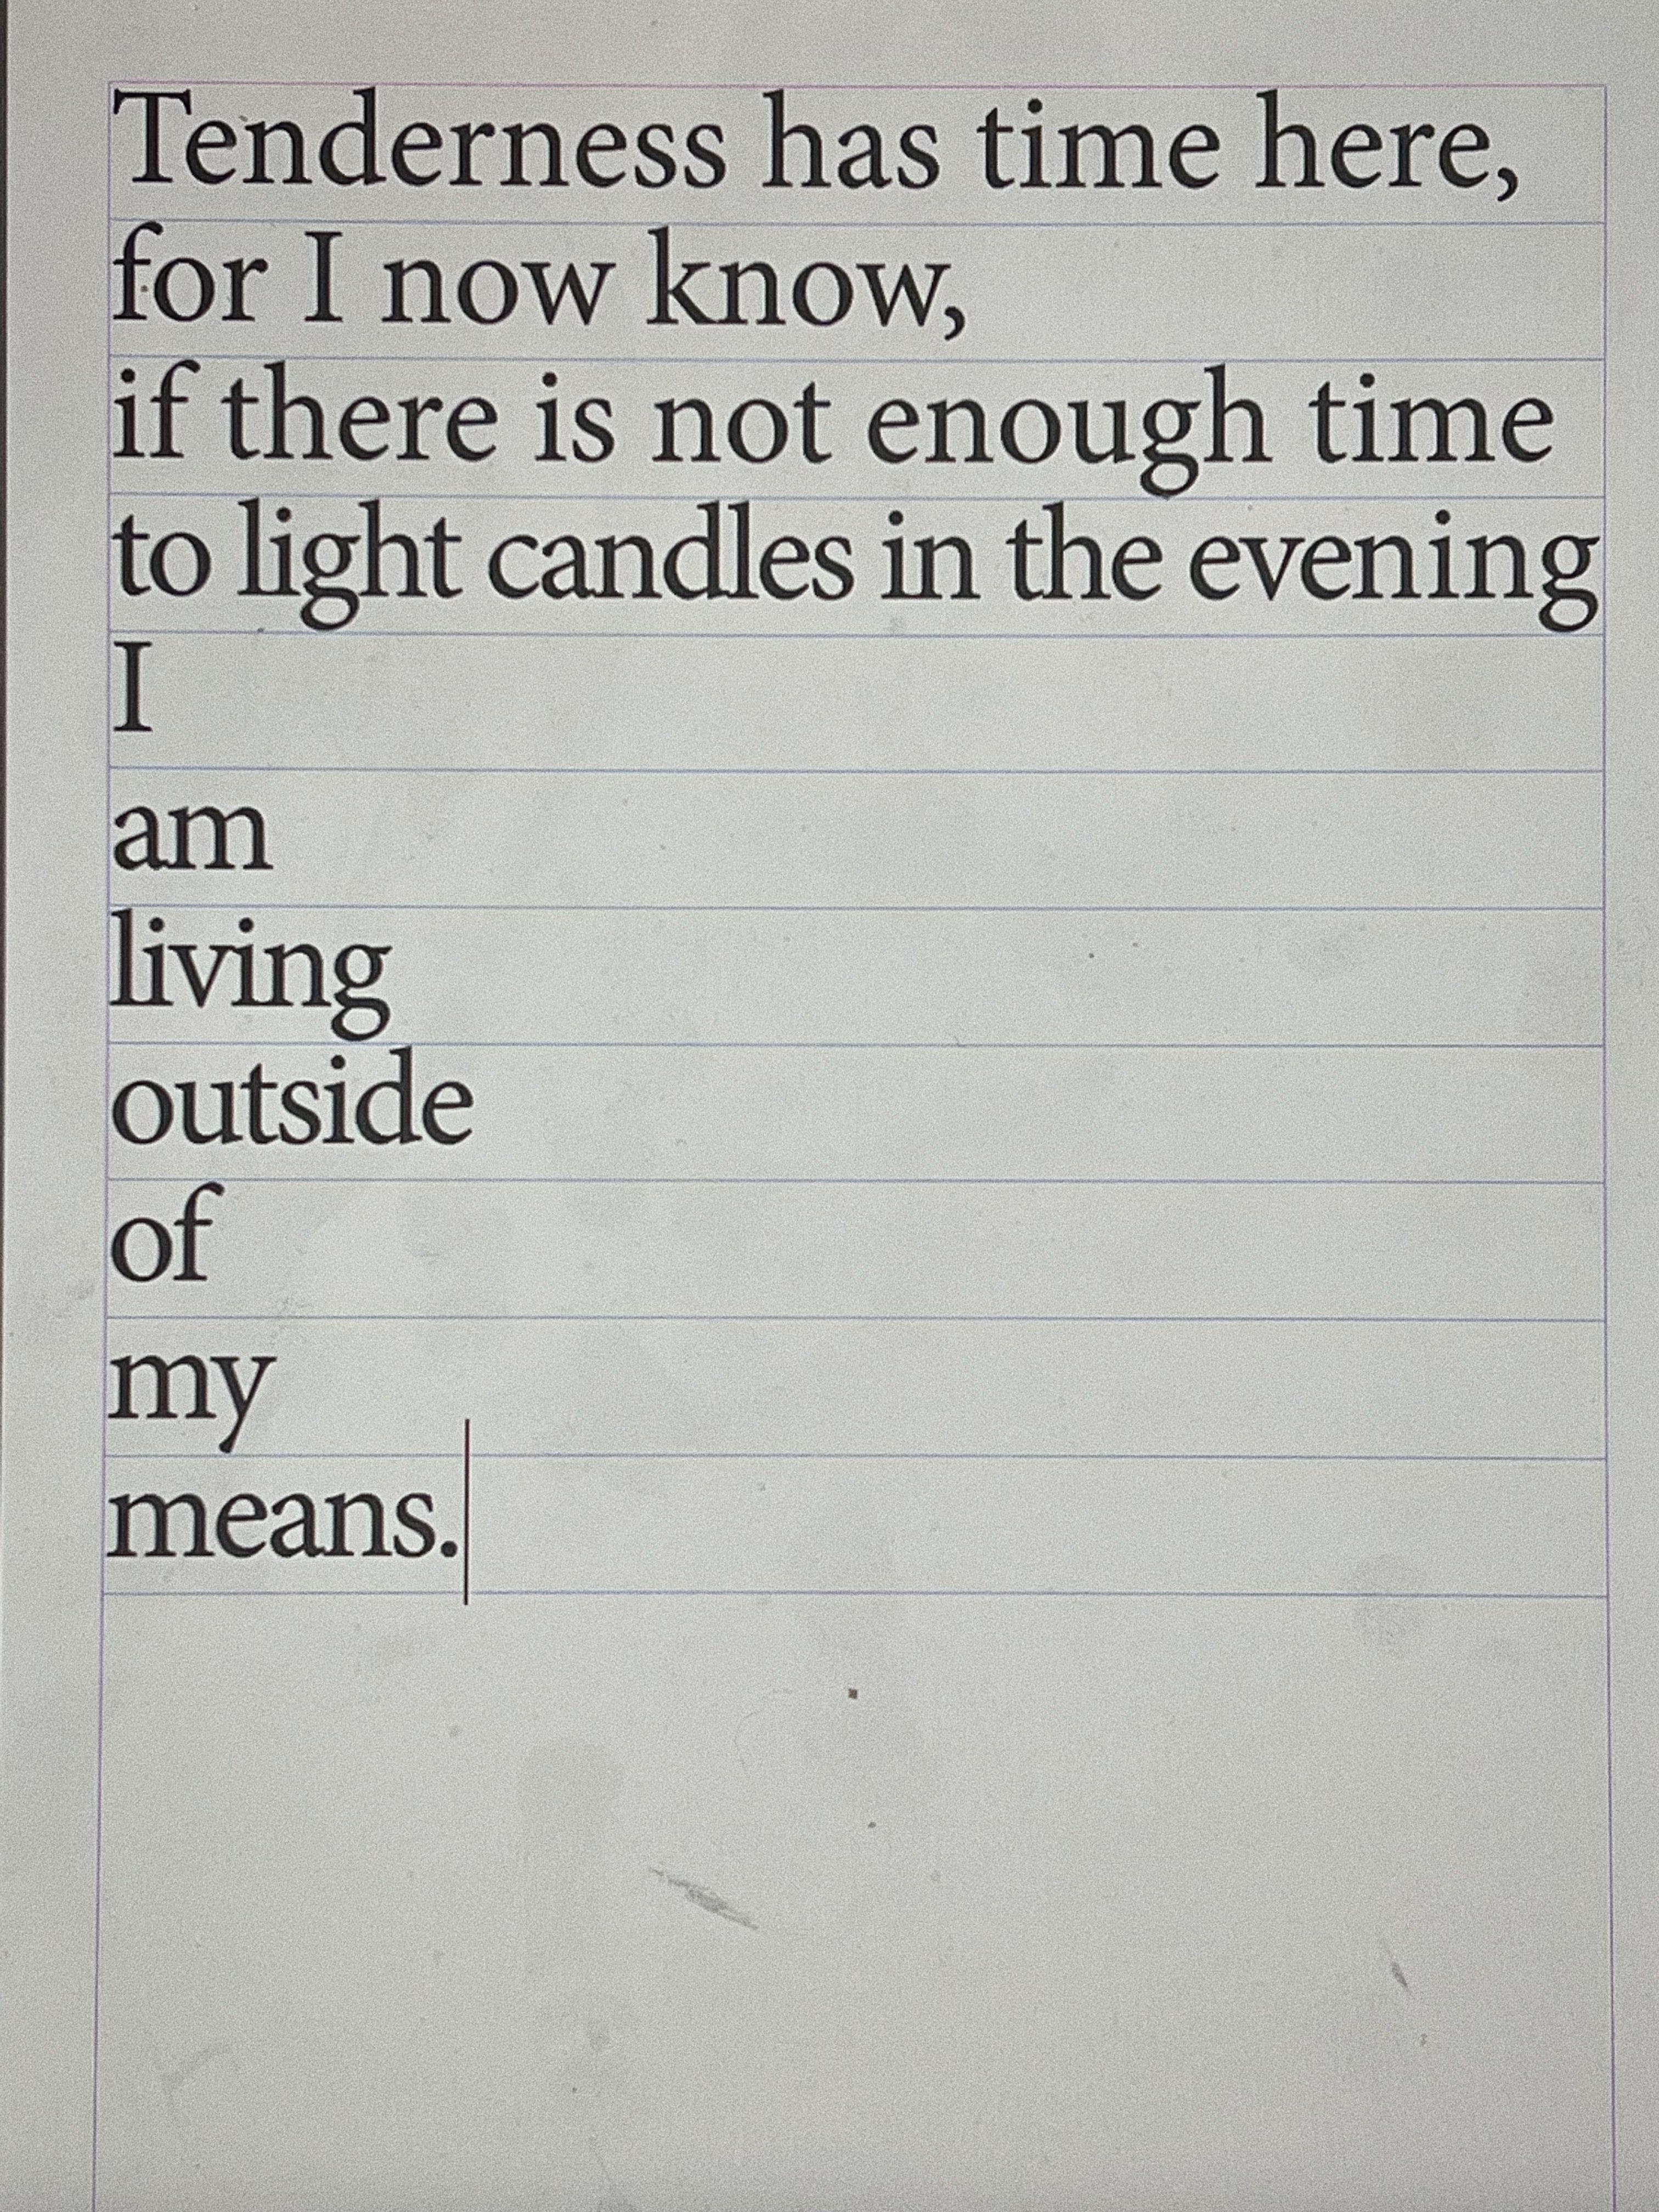 Tenderness has time here,
for I now know,
if there is not enough time
to light candles in the evening
I
am
living
outside
of
my
means.